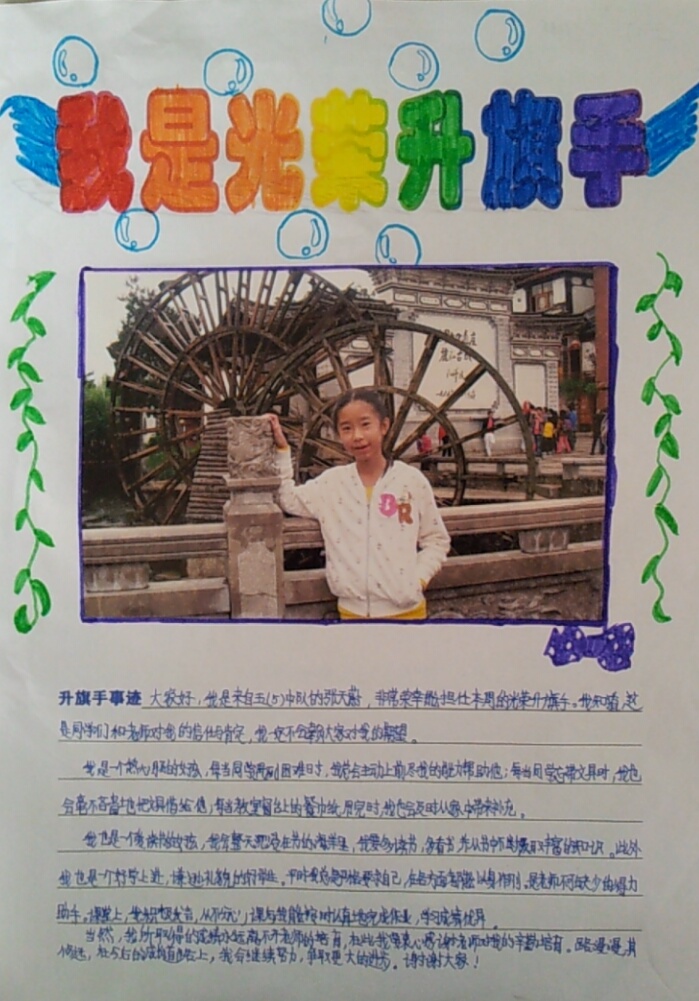 我是光荣升旗手
升旗手事迹 大家好,我是来自五(5)中队的张天蔚,非常荣幸能担任本周的光荣升旗手。我知道,这
是同学们和老师对我的信任与肯定,我一定不会辜负大家对我的期望。
我是一个热心的女孩,每当同学遇到困难时,我总会主动上前尽我的能力帮助他;每当同学忘带文具时,我也
会毫不吝啬地把文具借给他;每当教室窗台上的餐巾纸用完时,我也会及时从家中带来补充。
我也是一个爱读书的女孩,我会整天沉浸在书的海洋里,我要多读书,多看书,并从书中汲取丰富的知识。此外
我也是一个积极上进,谦逊礼貌的好学生。平时我总是严格要求自己,在各方面都能以身作则,是老师不可缺少的得力
助手。课堂上,我积极发言,从不分心;课后我能按时认真地完成作业,学习成绩优异。
当然,我所取得的成绩永远离不开老师的培育,在此我要衷心感谢老师对我的辛勤培育。路漫漫其
修远,在今后的成长道路上,我会继续努力,争取更大的进步。谢谢大家!